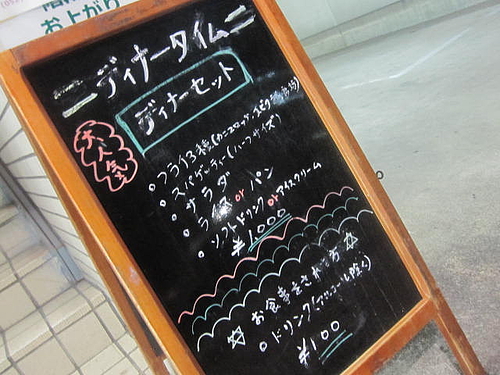 お上がり
ディナータイム
ディナーセット
大人気
フライ3種(カニコロッケ、エビフライ
スパゲッティー(ハーフサイズ)
サラダ
ライス or パン
ソフトドリンク or アイスクリーム
¥1,000
☆お食事をされた方☆
ドリンク(アルコール除く)
¥100